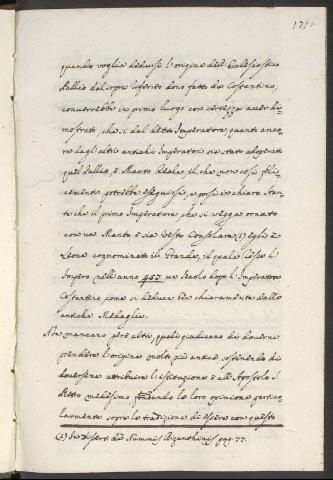 171.
quando voglia dedursi l'origine dell'Ecclesiastico
Pallio dal sopra riferito dono fatto da Costantino,
converrebbe in primo luogo con certezza aver di=
mostrato, che si dal detto Imperatore, quanto anco=
ra dagli altri antichi Imperatori sia stato adoperato
quel Pallio, ò Manto Reale, il che non così feli=
cemente potrebbe eseguirsi, a porsi in chiaro stan=
te che il primo Imperatore che si vegga ornato
con un Manto ò sia Veste Consolare (1) egli è
Leone cognominato il Grande, il quale resse l'
Impero nell'anno 457. un secolo dopo l'Imperatore
Costantino come si deduce ben chiaramente dalle
antiche Medaglie.
Non mancano però altri, quali giudicano di doverne
prendere l'origine molto più antica, sostenendo di
doversene attribuire l'istituzione all'Apostolo S.
Pietro medesimo fondando la loro opinione partico
larmente sopra la tradizione di essere con questo
(1) In Dissert. de Nummis Bizanthinis pag. 77.